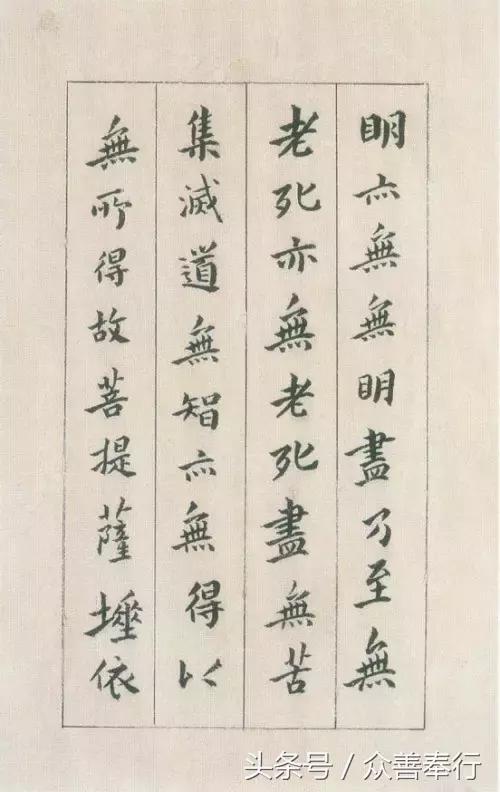 明亦無無明盡乃至無
老死亦無老死盡無苦
集滅道無智亦無得以
無所得故菩提薩埵依
头条号 / 众善奉行